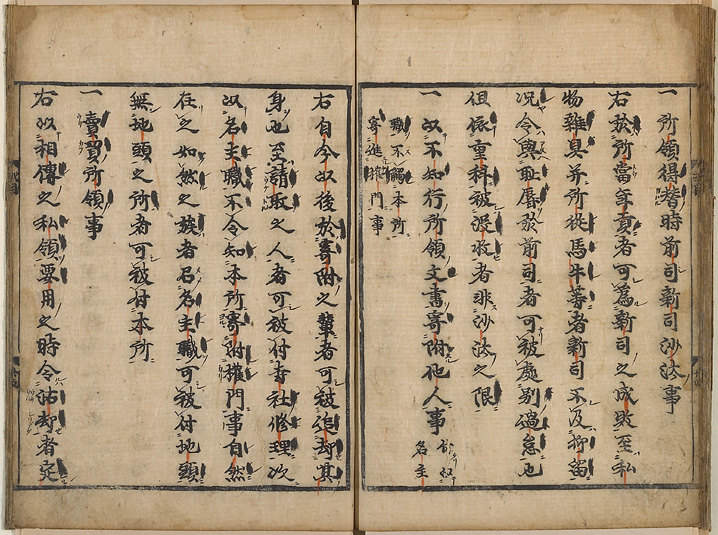 一 所領得替時前司新司沙汰事
右於所當年貢者可為新司之成敗至私
物雜具并所從馬牛等者新司不及抑留
況令與恥辱於前司者可被處別過怠也
但依重科被沒收者非沙汰之限
一 以不知行所領文書寄附他人事 付以名主
職不觸本所
寄進權門事
右自今以後於寄附之輩者可被追却其
身也至請取之人者可被付寺社修理次
以名主職不令知本所寄附權門事自然
在之如然之族者召名主職可被付地頭
無地頭之所者可被付本所
一 賣買所領事
右以相傳之私領要用之時令沽却者定